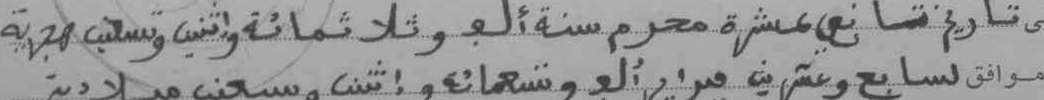 ى تاريخ عشرة محرم سنة ألف و ثلاثمائة واثنين وتسعين هجرية
موافق لسابع وعشرين فبراير ألف وتسعمائة و إثنين وسبعين ميلادية